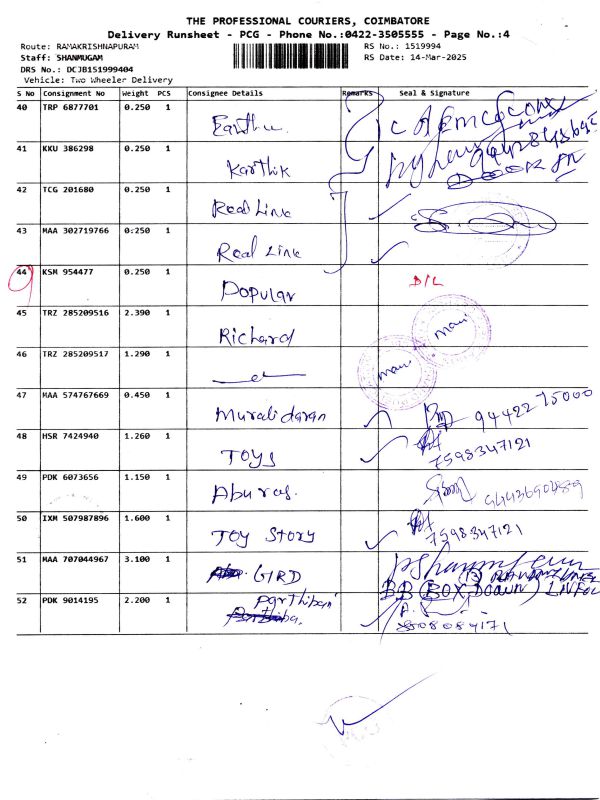 THE PROFESSIONAL COURIERS, COIMBATORE
Delivery Runsheet - PCG - Phone No.:0422-3505555 - Page No.:4
Route: RAMAKRISHNAPURAM RS No.: 1519994
Staff: SHANMUGAM RS Date: 14-Mar-2025
DRS No.: DCJB151999404
Vehicle: Two Wheeler Delivery
S No Consignment No Weight PCS Consignee Details Remarks Seal & Signature
40 TRP 6877701 0.250 1
41 KKU 386298 0.250 1 Karthik
42 TCG 201680 0.250 1 Real Link
43 MAA 302719766 0.250 1 Real Link
44 KSM 954477 0.250 1 Popular D/L
45 TRZ 285209516 2.390 1 Richard mani
46 TRZ 285209517 1.290 1 mani
47 MAA 574767669 0.450 1 Muralidaran 94422 75000
48 HSR 7424940 1.260 1 TOYS 7598347121
49 PDK 6073656 1.150 1
50 IXM 507987896 1.600 1 TOY STORY 7598347121
51 MAA 707044967 3.100 1 GIRD
52 PDK 9014195 2.200 1 Parthiban